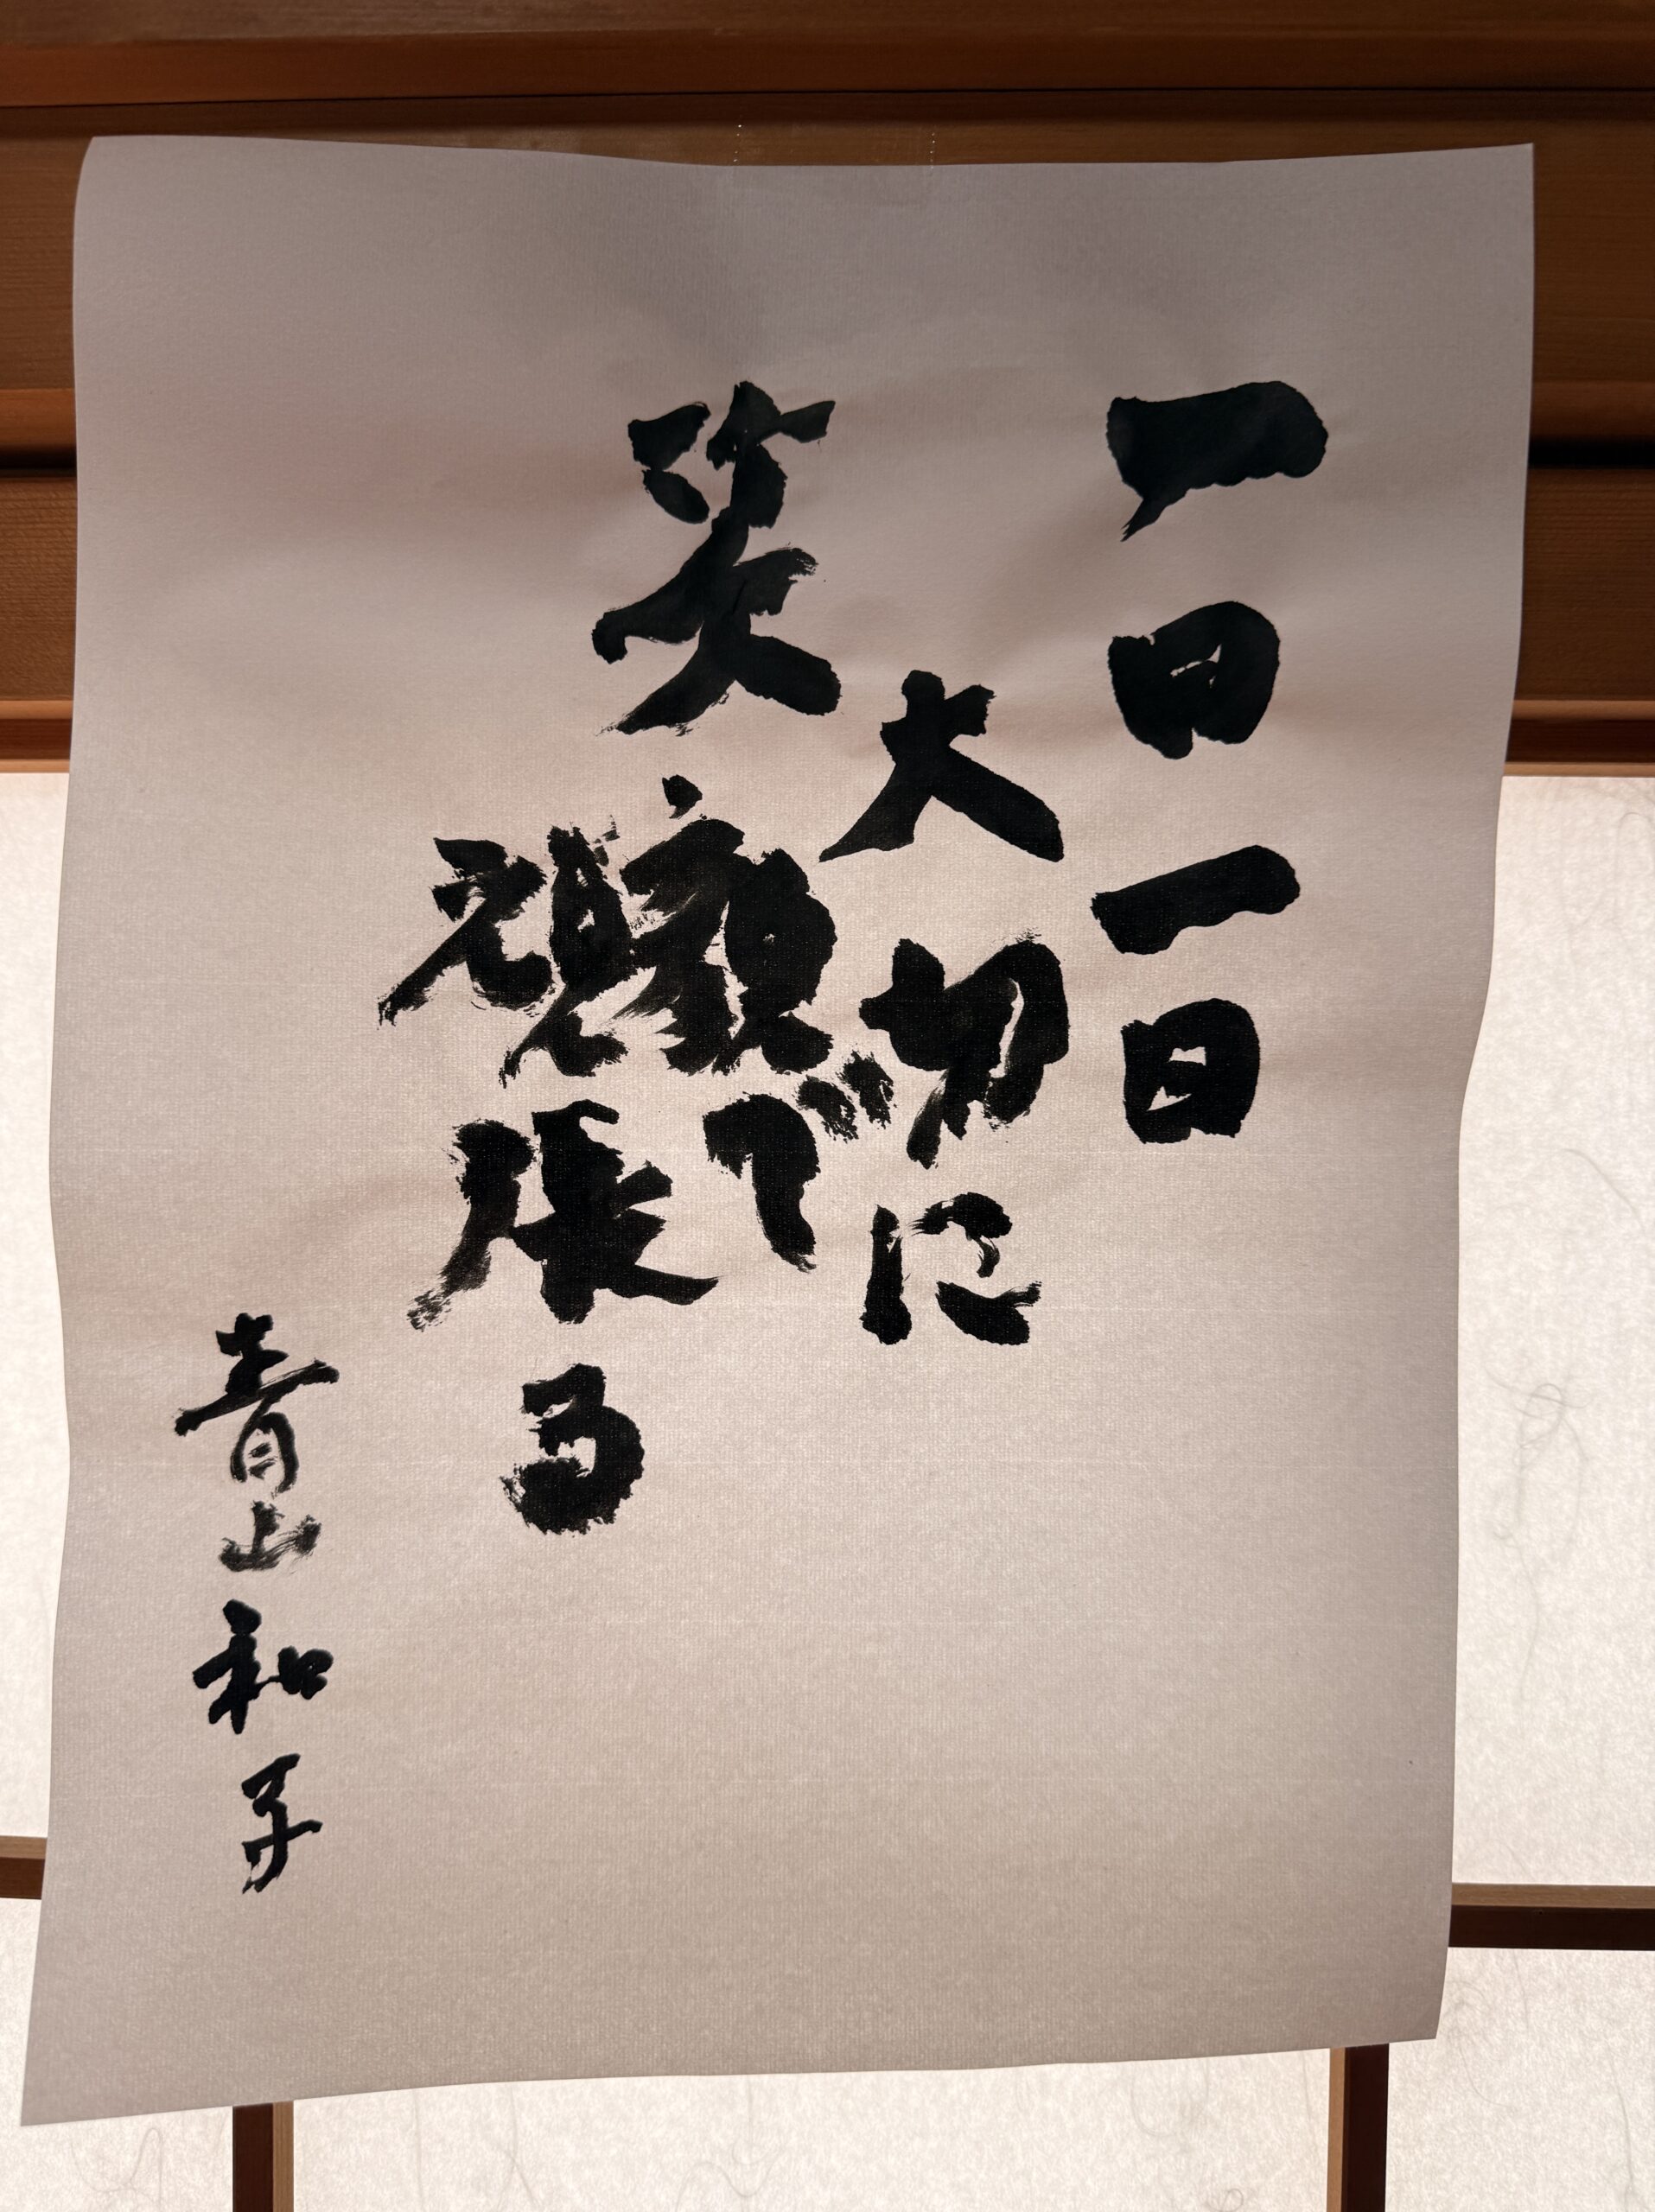 一日一日
大切に
笑顔で
頑張る
青山和子